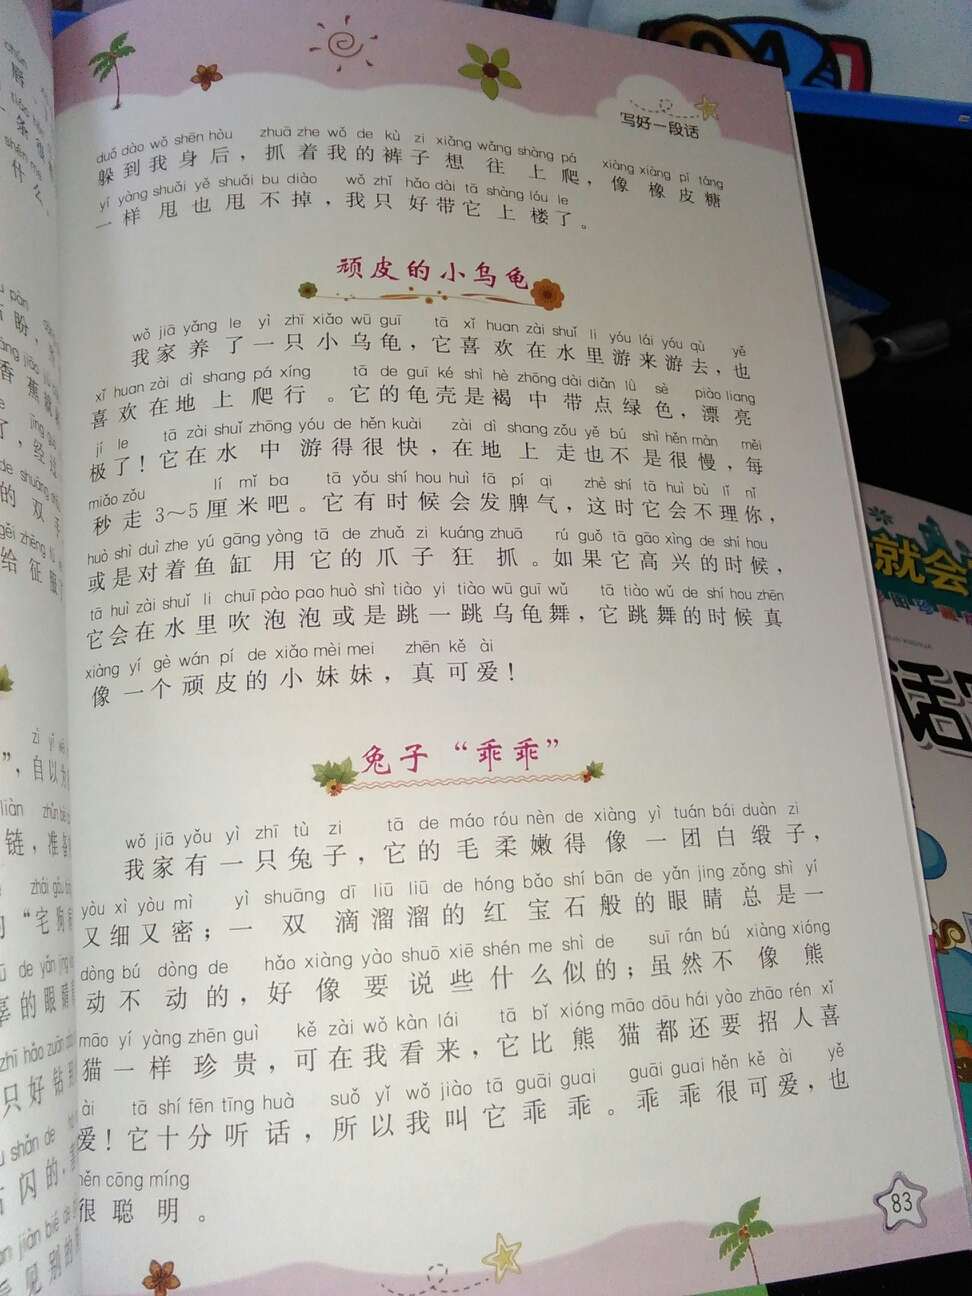 写好一段话
duǒ dào wǒ shēn hòu zhuā zhe wǒ de kù zi xiǎng wǎng shàng pá xiàng xiàng pí táng
躲到我身后，抓着我的裤子想往上爬，像橡皮糖
yí yàng shuǎi yě shuǎi bu diào wǒ zhǐ hǎo dài tā shàng lóu le
一样甩也甩不掉，我只好带它上楼了。
顽皮的小乌龟
wǒ jiā yǎng le yì zhī xiǎo wū guī tā xǐ huan zài shuǐ li yóu lái yóu qù yě
我家养了一只小乌龟，它喜欢在水里游来游去，也
xǐ huan zài dì shang pá xíng tā de guī ké shì hè zhōng dài diǎn lǜ sè piào liang
喜欢在地上爬行。它的龟壳是褐中带点绿色，漂亮
jí le tā zài shuǐ zhōng yóu de hěn kuài zài dì shang zǒu yě bú shì hěn màn měi
极了！它在水中游得很快，在地上走也不是很慢，每
miǎo zǒu lí mǐ ba tā yǒu shí hou huì fā pí qi zhè shí tā huì bù lǐ nǐ
秒走3~5厘米吧。它有时候会发脾气，这时它会不理你，
huò shì duì zhe yú gāng yòng tā de zhuǎ zi kuáng zhuā rú guǒ tā gāo xìng de shí hou
或是对着鱼缸用它的爪子狂抓。如果它高兴的时候，
tā huì zài shuǐ li chuī pào pao huò shì tiào yi tiào wū guī wǔ tā tiào wǔ de shí hou zhēn
它会在水里吹泡泡或是跳一跳乌龟舞，它跳舞的时候真
xiàng yí gè wán pí de xiǎo mèi mei zhēn kě ài
像一个顽皮的小妹妹，真可爱！
兔子“乖乖”
wǒ jiā yǒu yì zhī tù zi tā de máo róu nèn de xiàng yì tuán bái duàn zi
我家有一只兔子，它的毛柔嫩得像一团白缎子，
yòu xì yòu mì yì shuāng dī liū liū de hóng bǎo shí bān de yǎn jing zǒng shì yí
又细又密；一双滴溜溜的红宝石般的眼睛总是一
dòng bú dòng de hǎo xiàng yào shuō xiē shén me shì de suī rán bú xiàng xióng
动不动的，好像要说些什么似的；虽然不像熊
māo yí yàng zhēn guì kě zài wǒ kàn lái tā bǐ xióng māo dōu hái yào zhāo rén xǐ
猫一样珍贵，可在我看来，它比熊猫都还要招人喜
ài tā shí fēn tīng huà suǒ yǐ wǒ jiào tā guāi guai guāi guai hěn kě ài yě
爱！它十分听话，所以我叫它乖乖。乖乖很可爱，也
hěn cōng míng
很聪明。
83
什么
香蕉
的双
给征服
”，自以为
链，准备
的“宅
的眼睛
只好钻
闪的，
见别的
就会
话